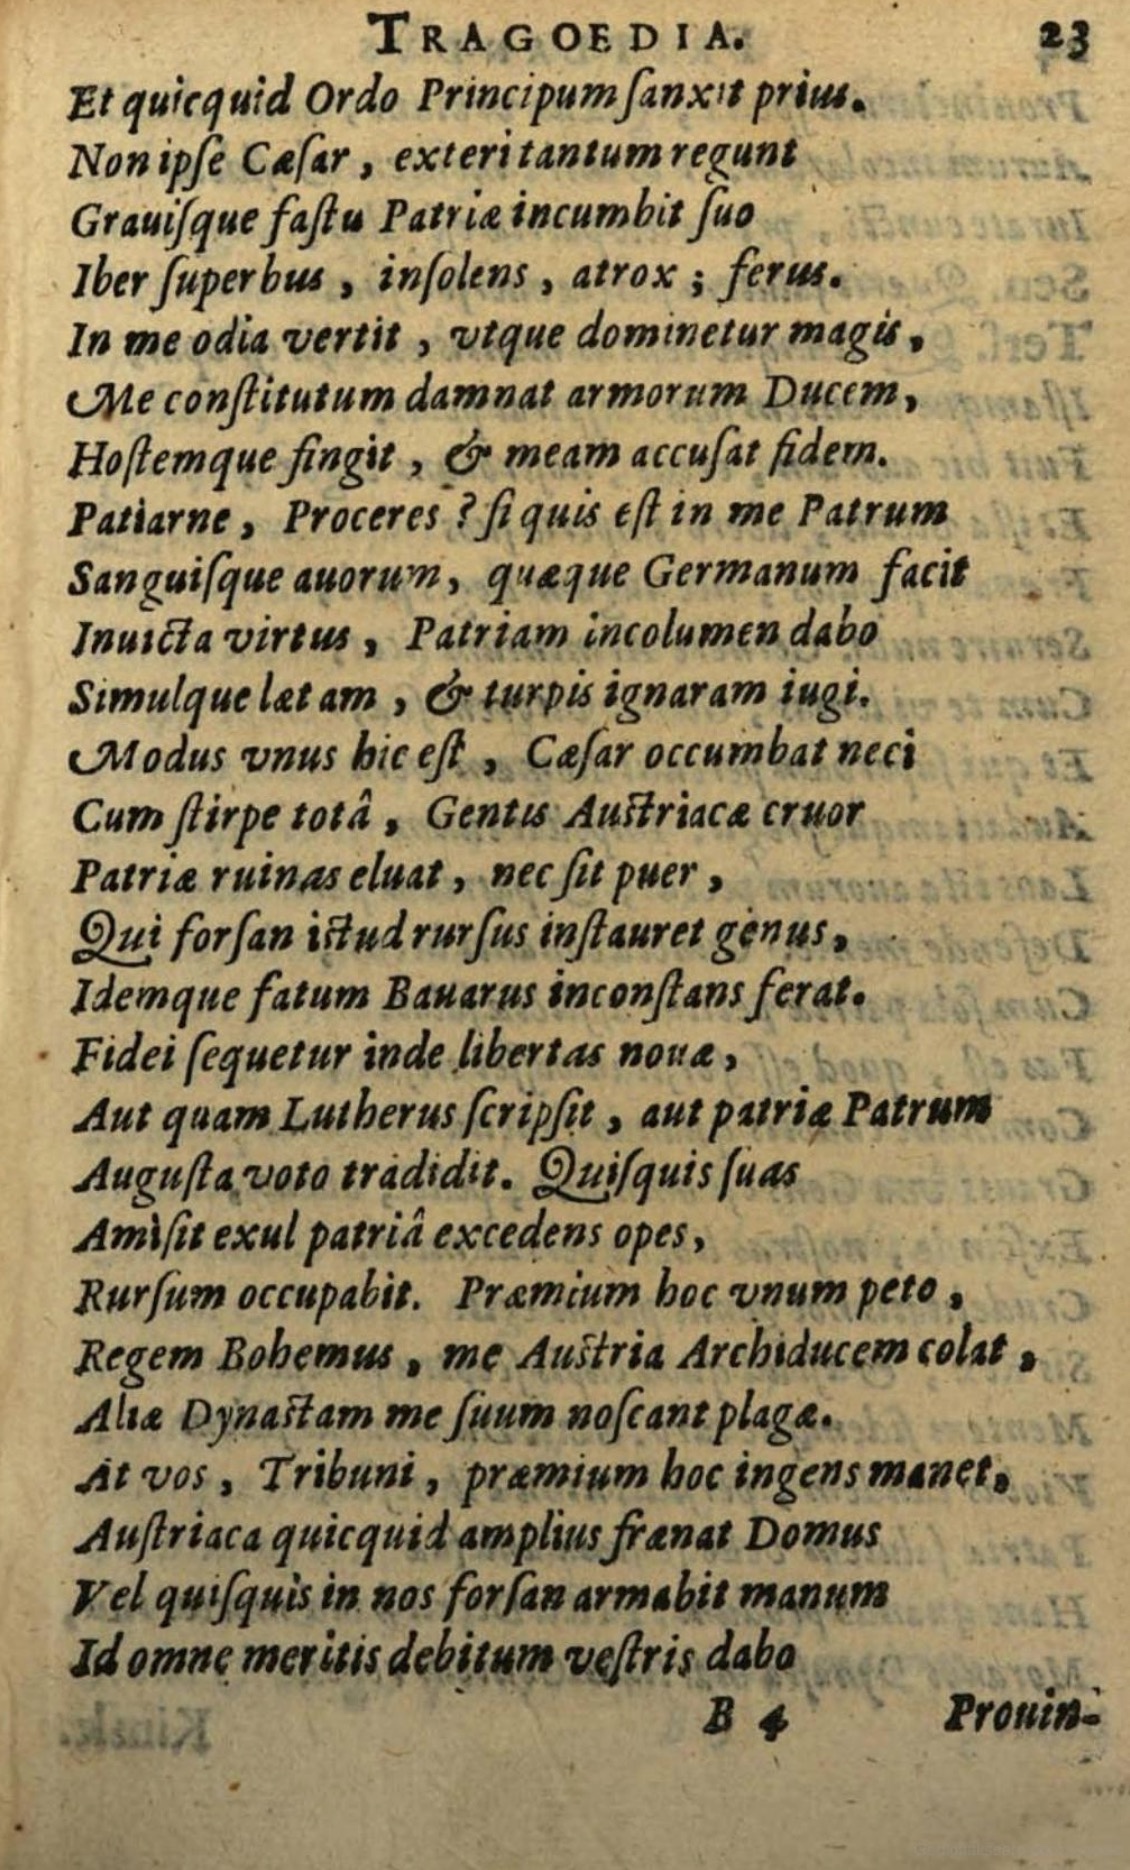 TRAGOEDIA. 23
Et quicquid Ordo Principum ſanxit prius.
Non ipſe Cæſar, exteri tantum regunt
Grauiſque faſtu Patriæ incumbit ſuo
Iber ſuperbus, inſolens, atrox; ferus.
In me odia vertit, vtque dominetur magis,
Me conſtitutum damnat armorum Ducem,
Hoſtemque fingit, & meam accuſat fidem.
Patiarne, Proceres? ſi quis eſt in me Patrum
Sanguiſque auorum, quæque Germanum facit
Inuicta virtus, Patriam incolumen dabo
Simulque lætam, & turpis ignaram iugi.
Modus vnus hic eſt, Cæſar occumbat neci
Cum ſtirpe totâ, Gentis Auſtriacæ cruor
Patriæ ruinas eluat, nec ſit puer,
Qui forſan iſtud rurſus inſtauret genus,
Idemque fatum Bauarus inconſtans ferat.
Fidei ſequetur inde libertas nouæ,
Aut quam Lutherus ſcripſit, aut patriæ Patrum
Auguſta voto tradidit. Quiſquis ſuas
Amiſit exul patriâ excedens opes,
Rurſum occupabit. Præmium hoc vnum peto,
Regem Bohemus, me Auſtria Archiducem colat,
Aliæ Dynaſtam me ſuum noſcant plagæ.
At vos, Tribuni, præmium hoc ingens manet,
Auſtriaca quicquid amplius frænat Domus
Vel quiſquis in nos forſan armabit manum
Id omne meritis debitum veſtris dabo
B 4 Prouin-